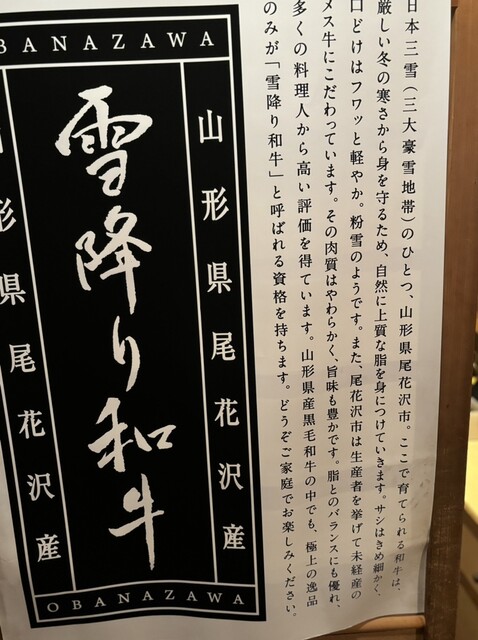 日本三雪（三大豪雪地帯）のひとつ、山形県尾花沢市。ここで育てられる和牛は、
厳しい冬の寒さから身を守るため、自然に上質な脂を身につけていきます。サシはきめ細かく、
口どけはフワッと軽やか。粉雪のようです。また、尾花沢市は生産者を挙げて未経産の
メス牛にこだわっています。その肉質はやわらかく、旨味も豊かです。脂とのバランスにも優れ、
多くの料理人から高い評価を得ています。山形県産黒毛和牛の中でも、極上の逸品
のみが「雪降り和牛」と呼ばれる資格を持ちます。どうぞご家庭でお楽しみください。
OBANAZAWA
山形県尾花沢産
雪降り和牛
山形県尾花沢産
OBANAZAWA